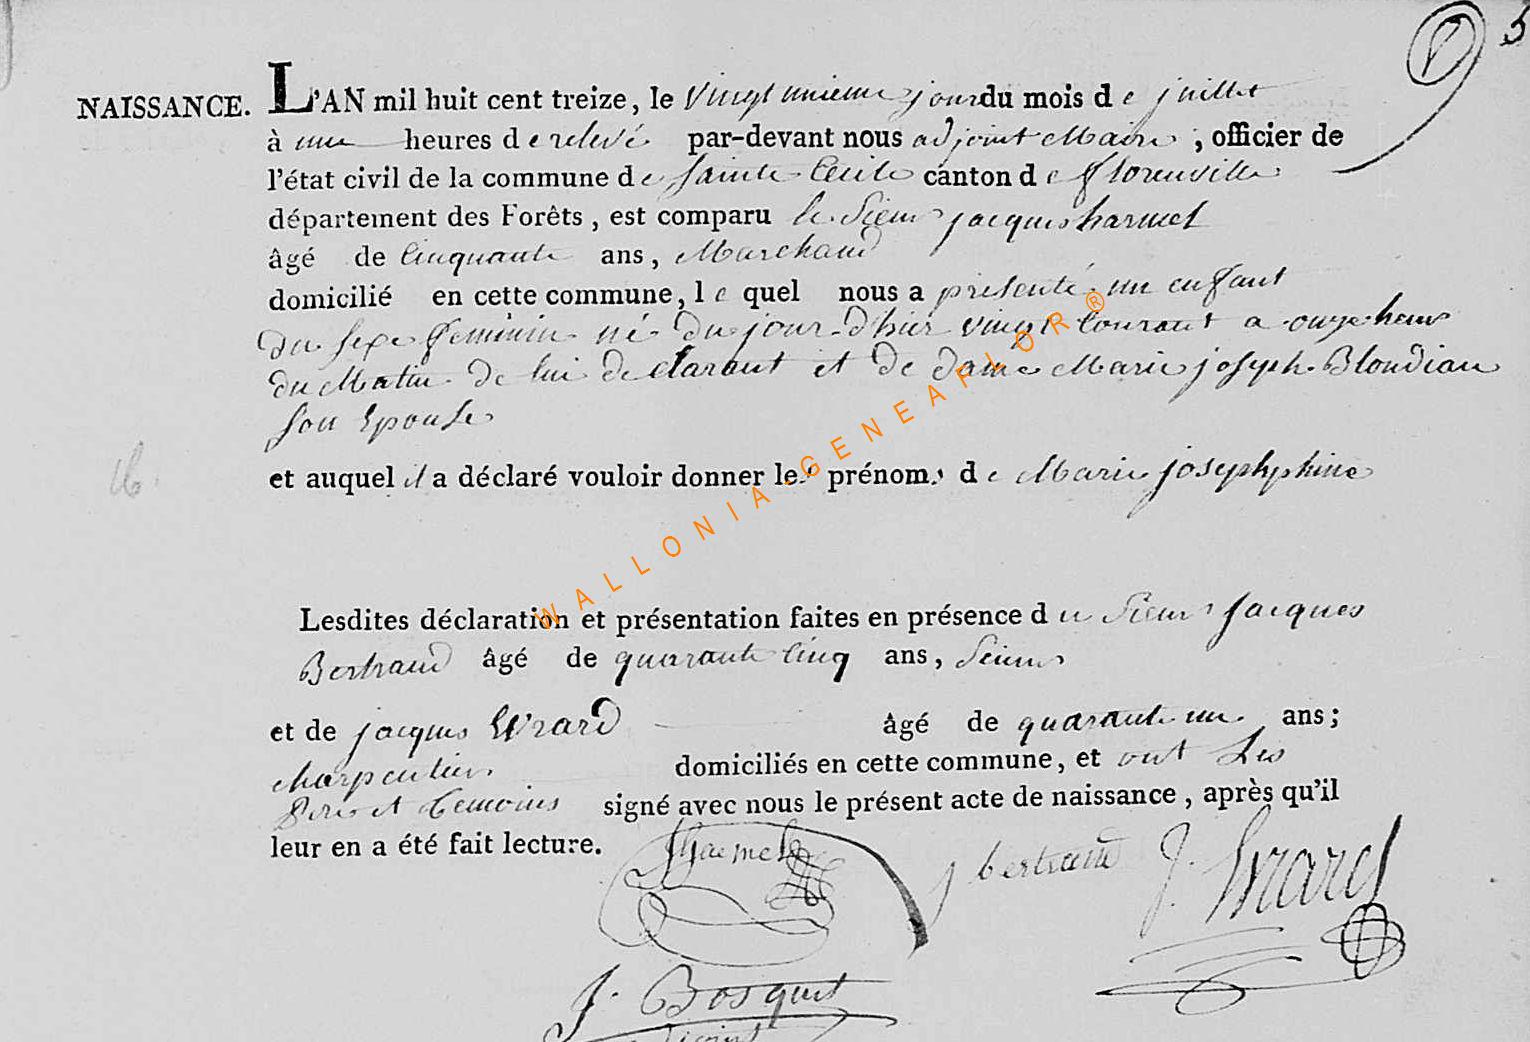 5
NAISSANCE. L'AN mil huit cent treize, le vingt unieme jour du mois de juillet
à une heures de relevé par-devant nous adjoint Maire, officier de
l'état civil de la commune de Sainte Cecile canton de florenville
département des Forêts, est comparu le Sieur jacques harmel
âgé de Cinquante ans, Marchand
domicilié en cette commune, le quel nous a presenté un enfant
du sexe feminin né du jour d'hier vingt Courant a onze heurs
du Matin de lui declarant et de dame Marie joseph Blondiau
son Epouse
et auquel il a déclaré vouloir donner les prénoms de Marie josephphine
Lesdites déclaration et présentation faites en présence du Sieur Jacques
Bertrand âgé de quarante Cinq ans,
et de jacques Evrard âgé de quarante un ans;
charpentier domiciliés en cette commune, et ont Les
Pere et temoins signé avec nous le présent acte de naissance, après qu'il
leur en a été fait lecture.
JHarmel j bertrand J. Evrard
J. Bosquet
WALLONIA-GENEAFLOR®